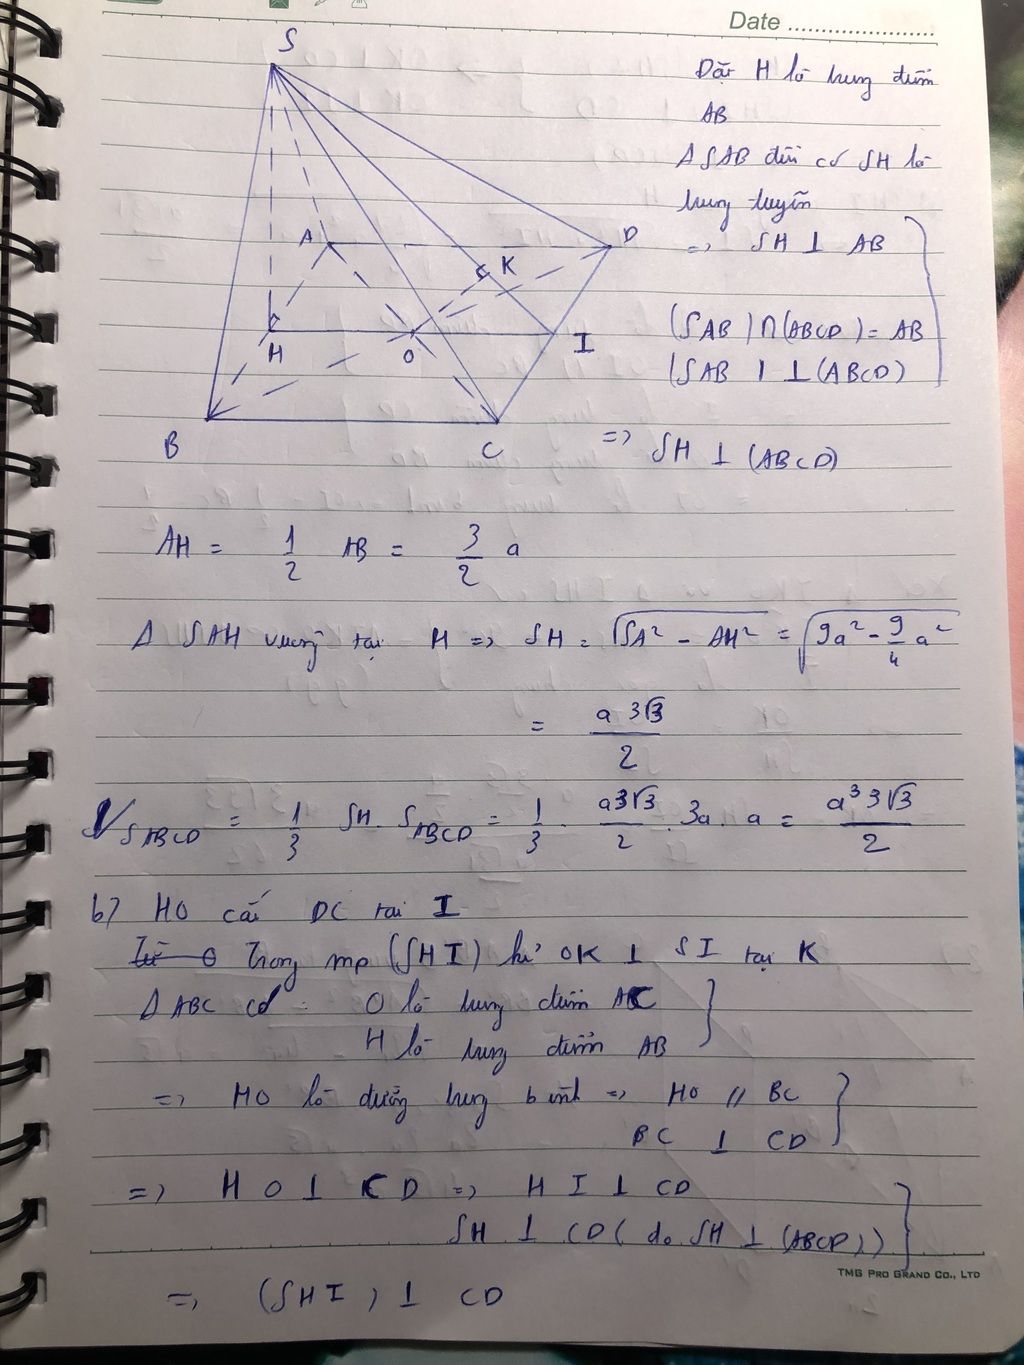 Date
S
A
D
K
H
O
I
B
C
Đặt H là trung điểm
AB
Δ SAB đều có SH là
trung tuyến
=> SH ⊥ AB
(SAB) ∩ (ABCD) = AB
(SAB) ⊥ (ABCD)
=> SH ⊥ (ABCD)
AH = 1/2 AB = 3/2 a
Δ SAH vuông tại H => SH = √(SA² - AH²) = √(9a² - 9/4 a²)
= a3√3/2
V SABCD = 1/3 SH. SABCD = 1/3 . a3√3/2 . 3a . a = a³3√3/2
b) HO cắt DC tại I
Trong mp (SHI) kẻ OK ⊥ SI tại K
Δ ABC có : O là trung điểm AC
H là trung điểm AB
=> HO là đường trung bình => HO // BC
BC ⊥ CD
=> HO ⊥ CD => HI ⊥ CD
SH ⊥ CD (do SH ⊥ (ABCD))
=> (SHI) ⊥ CD
TMG PRO GRAND CO., LTD